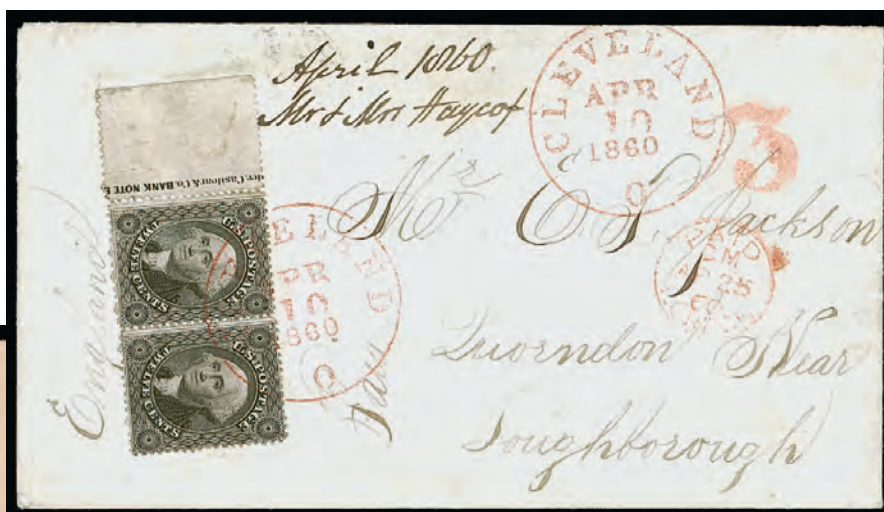 April 1860.
Mr & Mrs Haycof
CLEVELAND
APR
10
1860
O
3
Mr C. Jackson
PAID
25
60
Quorndon Near
Loughborough
England
Casilear & Co. BANK NOTE E
U.S. POSTAGE
TWELVE
CENTS
U.S. POSTAGE
TWELVE
CENTS
CLEVELAND
APR
10
1860
O